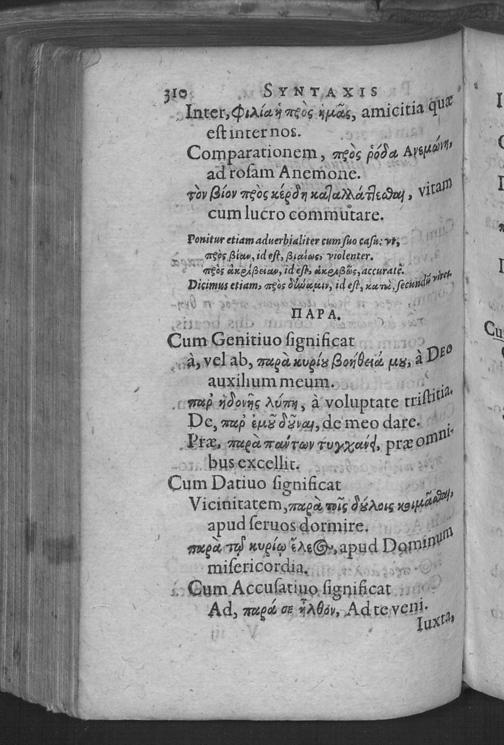 310 SYNTAXIS
Inter, φιλία ἡ πρὸς ἡμᾶς, amicitia quæ
est inter nos.
Comparationem, πρὸς ῥόδα Ανεμώνη,
ad rosam Anemone.
τὸν βίον πρὸς κέρδη καταλλάττεσθαι, vitam
cum lucro commutare.
Ponitur etiam aduerbialiter cum suo casu: vt,
πρὸς βίαν, id est, βιαίως, violenter.
πρὸς ἀκρίβειαν, id est, ἀκριβῶς, accuratè.
Dicimus etiam, πρὸς δύναμιν, id est, κατὰ, secundũ vires.
ΠΑΡΑ.
Cum Genitiuo significat
à, vel ab, παρὰ κυρίου βοήθειά μου, à DEO
auxilium meum.
παρ' ἡδονῆς λύπη, à voluptate tristitia.
De, παρ' ἐμοῦ δοῦναι, de meo dare.
Præ, παρὰ πάντων τυγχάνει, præ omni-
bus excellit.
Cum Datiuo significat
Vicinitatem, παρὰ τοῖς δούλοις κοιμᾶσθαι,
apud seruos dormire.
παρὰ τῷ κυρίῳ ἔλεος, apud Dominum
misericordia.
Cum Accusatiuo significat
Ad, παρά σε ἦλθον, Ad te veni.
Iuxta,